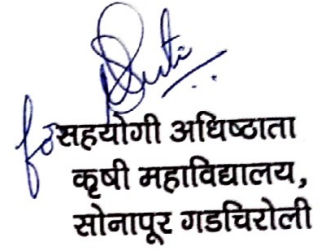 for सहयोगी अधिष्ठाता
कृषी महाविद्यालय,
सोनापूर गडचिरोली